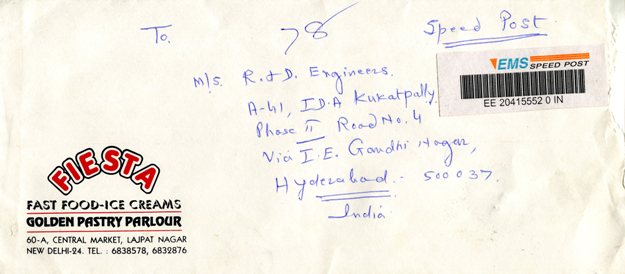 To.
78
Speed Post
EMS SPEED POST
EE 20415552 0 IN
M/s. R.&D. Engineers.
A-41, I.D.A Kukatpally
Phase II Road No. 4
Via I.E. Gandhi Nagar,
Hyderabad. - 500037.
India
FIESTA
FAST FOOD-ICE CREAMS
GOLDEN PASTRY PARLOUR
60-A, CENTRAL MARKET, LAJPAT NAGAR
NEW DELHI-24. TEL. : 6838578, 6832876